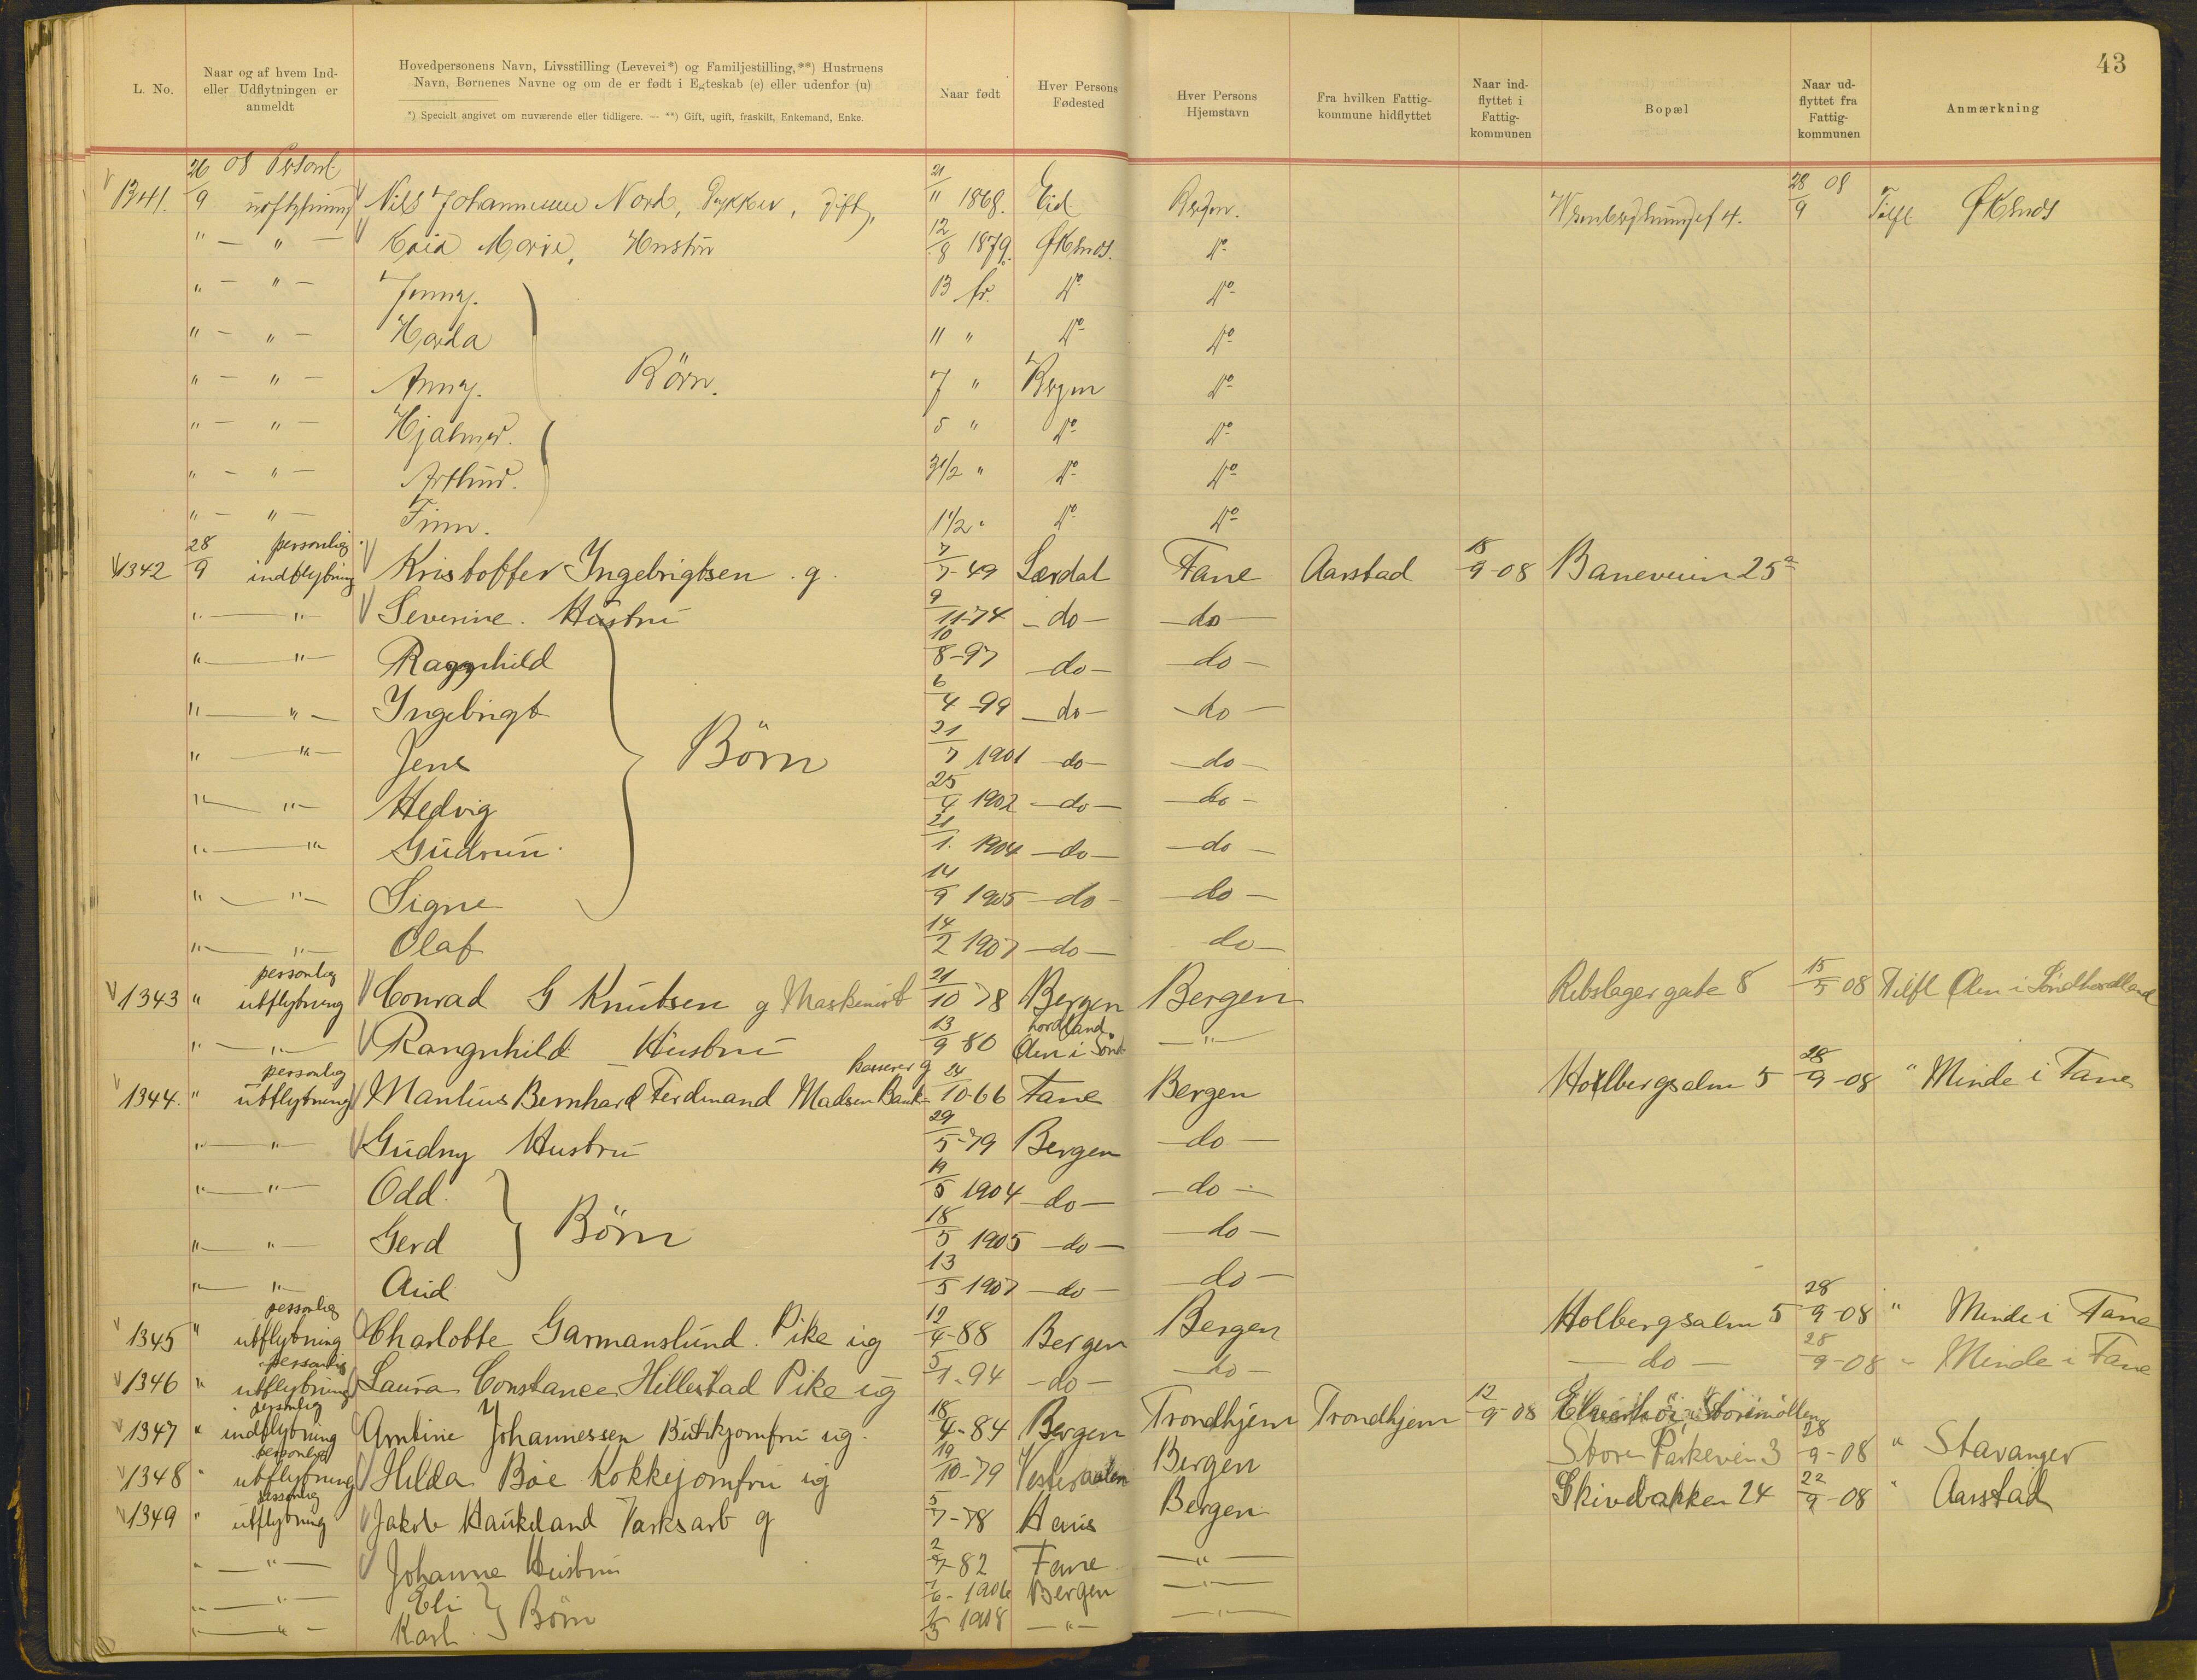 43
L. No. Naar og af hvem Ind- eller Udflytningen er anmeldt Hovedpersonens Navn, Livsstilling (Levevei*) og Familjestilling,**) Hustruens Navn, Børnenes Navne og om de er født i Egteskab (e) eller udenfor (u) Naar født Hver Persons Fødested Hver Persons Hjemstavn Fra hvilken Fattig-kommune hidflyttet Naar ind-flyttet i Fattig-kommunen Bopæl Naar ud-flyttet fra Fattig-kommunen Anmærkning
*) Specielt angivet om nuværende eller tidligere. — **) Gift, ugift, fraskilt, Enkemand, Enke.
1341. 26/9 08 Nils Johannesen Nord, gift, 21/11 1868. Eid Bergen. 28/9 08 Tilfl Øksnes
" — " — Kaia Marie, Hustru 12/8 1879. Øksnes. do
" — " — Jenny. 13 år. do do
" — " — Harda 11 " do do
" — " — Anny. Börn. 7 " Bergen do
" — " — Hjalmar. 5 " do do
" — " — Arthur. 3 1/2 " do do
" — " — Finn. 1 1/2 " do do
1342 28/9 personlig indflytning Kristoffer Ingebrigtsen . g. 7/7-49 Lærdal Fane Aarstad 15/9-08 Baneveien 25a
" — " Severine. Hustru 9/11-74 —do— —do—
" — " — Ragnhild 10/8-97 —do— —do—
" — " — Ingebrigt 6/4-99 —do— —do—
" — " — Jens Börn 21/7 1901 —do— —do—
" — " — Hedvig 25/4 1902 —do— —do—
" — " Gudrun. 21/1. 1904 —do— —do—
" — " — Signe 14/9 1905 —do— —do—
" — " — Olaf 14/2 1907 —do— do—
1343 " personlig utflytning Conrad G Knutsen g Maskinist 21/10 78 Bergen Bergen Rebslagergate 8 15/5 08 Tilfl Ølen i Söndhordland
" — " — Rangnhild Hustru 13/9 80 Ølen i Sönd-hordland — " —
1344. " personlig utflytning Mantius Bernhard Ferdinand Madsen Bank-kasserer g 24/10-66 Fane Bergen Holbergsalm 5 28/9-08 " Minde i Fane
" — " — Gudny Hustru 29/5-79 Bergen —do—
" — " — Odd. 19/5 1904 —do— —do—
" — " Gerd Börn 18/5 1905 —do— —do—
" — " — Aud 13/5 1907 —do— —do—
1345 " personlig utflytning Charlotte Garmanslund. Pike ug 12/4-88 Bergen Bergen Holbergsalm 5 28/9-08 " Minde i Fane
1346 " personlig utflytning Laura Constance Hillestad Pike ug 5/1-94 —do— —do— —do— 28/9-08 " Minde i Fane
1347 " personlig indflytning Amtine Johannessen Butikjomfru ug. 18/4-84 Bergen Trondhjem Trondhjem 12/9-08 Storemöllen
1348 " personlig utflytning Hilda Böe Kokkejomfru ug 19/10-79 Vesteraalen Bergen Store Parkevei 3 28/9-08 " Stavanger
1349 " personlig utflytning Jakob Haukeland g 5/7-78 Haus Bergen Skivebakken 24 22/9-08 " Aarstad
" — " — Johanne Hustru 2/7-82 Fane — " —
" — " — Eli Börn 1906 Bergen — " —
" — " — Karl 1908 — " — — " —